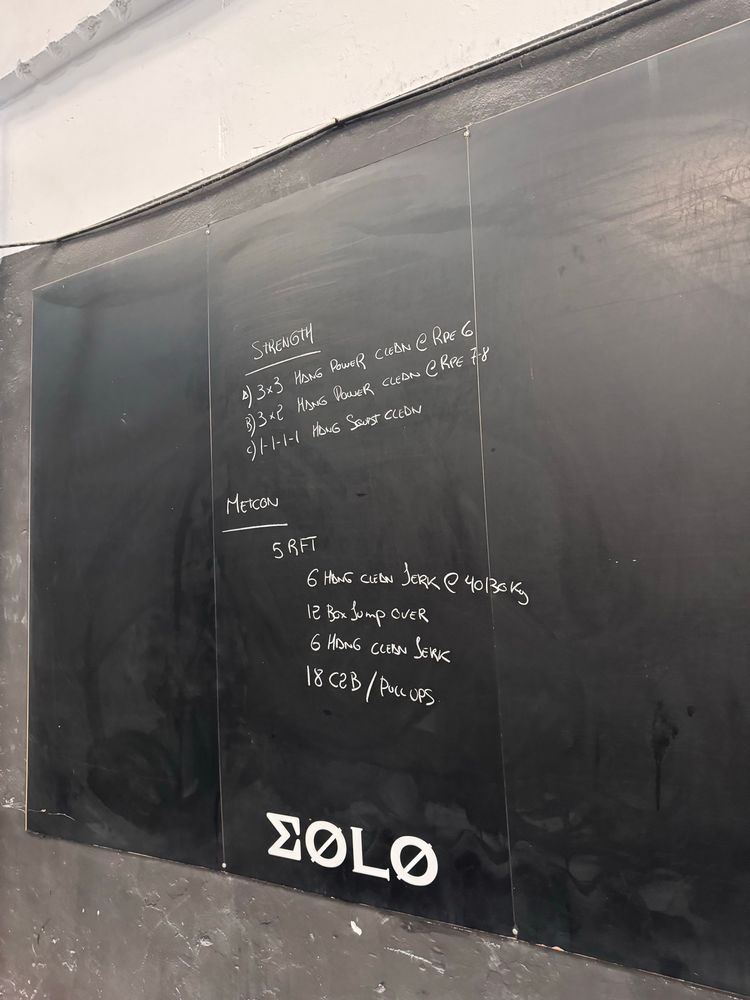 STRENGTH
A) 3x3 HANG POWER CLEAN @ RPE 6
B) 3x2 HANG POWER CLEAN @ RPE 7-8
C) 1-1-1-1 HANG SQUAT CLEAN
METCON
5 RFT
6 HANG CLEAN JERK @ 40/30 Kg
12 BOX JUMP OVER
6 HANG CLEAN JERK
18 C2B / PULL UPS
ΣØLØ